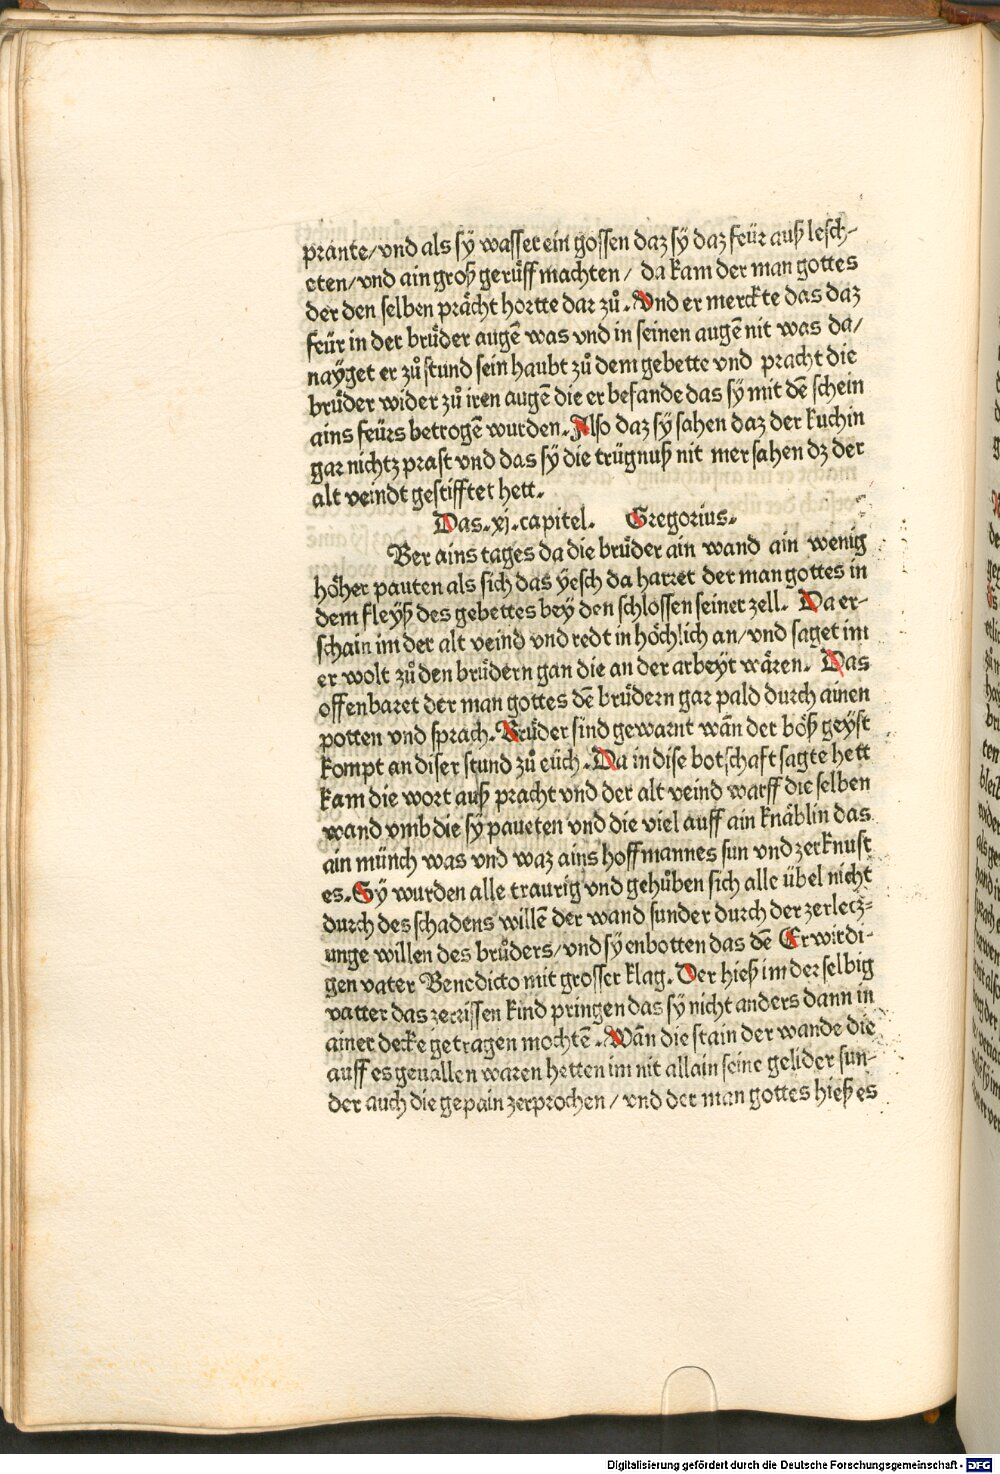 prante/vnd als sÿ wasser ein gossen daz sÿ daz feür auß lesch-
eten/vnd ain groß gerüff machten/ da kam der man gottes
der den selben prächt hortte dar zuͦ. Vnd er merckte das daz
feür in der bruͤder augē was vnd in seinen augē nit was da/
naÿget er zuͦ stund sein haubt zuͦ dem gebette vnd pracht die
bruͤder wider zuͦ iren augē die er befande das sÿ mit dē schein
ains feürs betrogē wurden. Also daz sÿ sahen daz der kuchin
gar nichtz prast vnd das sÿ die trügnuß nit mer sahen dz der
alt veindt gestifftet hett.
Das .xj. capitel. Gregorius.
Ber ains tages da die bruͤder ain wand ain wenig
höher pauten als sich das ÿesch da harret der man gottes in
dem fleÿß des gebettes beÿ den schlossen seiner zell. Da er-
schain im der alt veind vnd redt in höchlich an/vnd saget im
er wolt zuͦ den bruͤdern gan die an der arbeÿt wären. Das
offenbaret der man gottes dē bruͤdern gar pald durch ainen
potten vnd sprach. Bruͤder sind gewarnt wān der böß geÿst
kompt an diser stund zuͦ eüch. Da in dise botschaft sagte hett
kam die wort auß pracht vnd der alt veind warff die selben
wand vmb die sÿ paueten vnd die viel auff ain knäblin das
ain münch was vnd waz ains hoffmannes sun vnd zerknust
es. Sÿ wurden alle traurig vnd gehuͦben sich alle übel nicht
durch des schadens willē der wand sunder durch der zerlecz-
unge willen des bruͦders/vnd sÿ enbotten das dē Erwirdi-
gen vater Benedicto mit grosser klag. Der hieß im der selbig
vatter das zerrissen kind pringen das sÿ nicht anders dann in
ainer decke getragen mochtē. Wān die stain der wande die
auff es geuallen waren hetten im nit allain seine gelider sun-
der auch die gepain zerprochen/vnd der man gottes hieß es
Digitalisierung gefördert durch die Deutsche Forschungsgemeinschaft - DFG